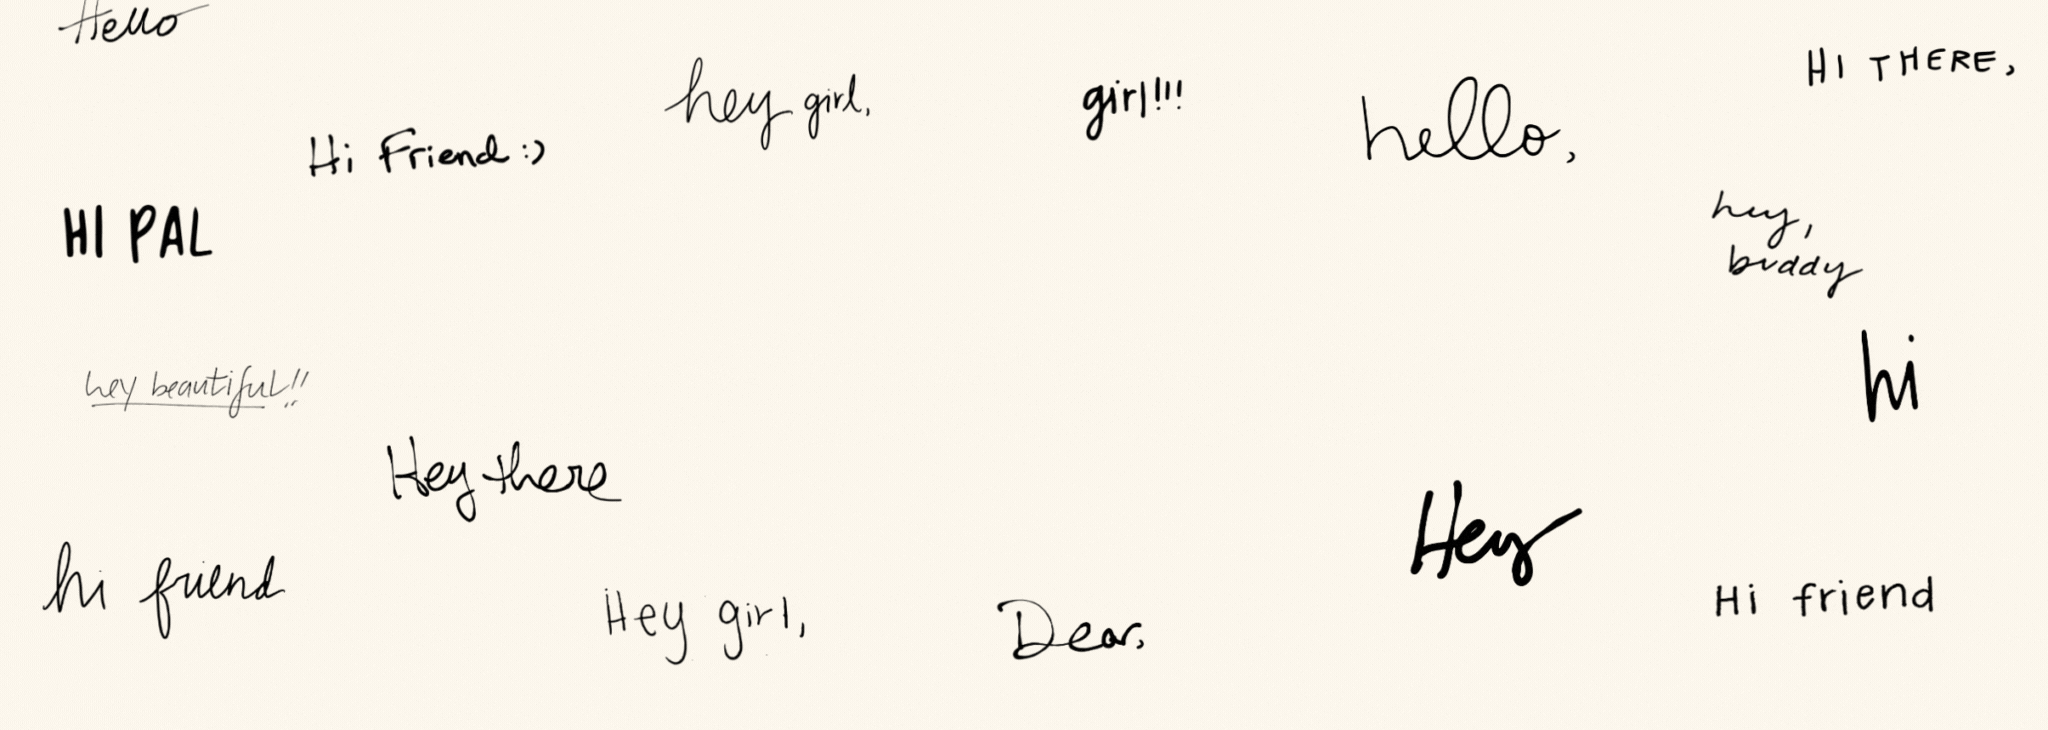 Hello
HI THERE,
hey girl,
girl!!!
hello,
Hi Friend :)
HI PAL
hey,
buddy
hey beautiful!!
hi
Hey there
Hey
hi friend
Hey girl,
Dear,
Hi friend